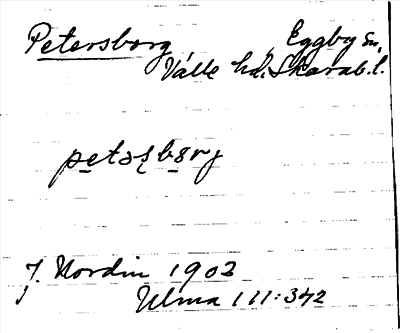 Petersborg Eggby sn,
Valle hd. Skarab. l.
petəʂbərj
J. Nordin 1902
Ulma 111:342